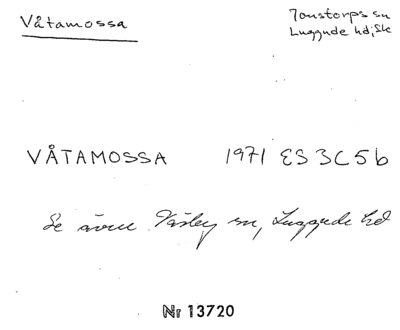 Våtamossa
Jonstorps sn
Luggude hd, Sk
VÅTAMOSSA 1971 ES 3C5b
Se även Väsby sn, Luggude hd
Nr 13720